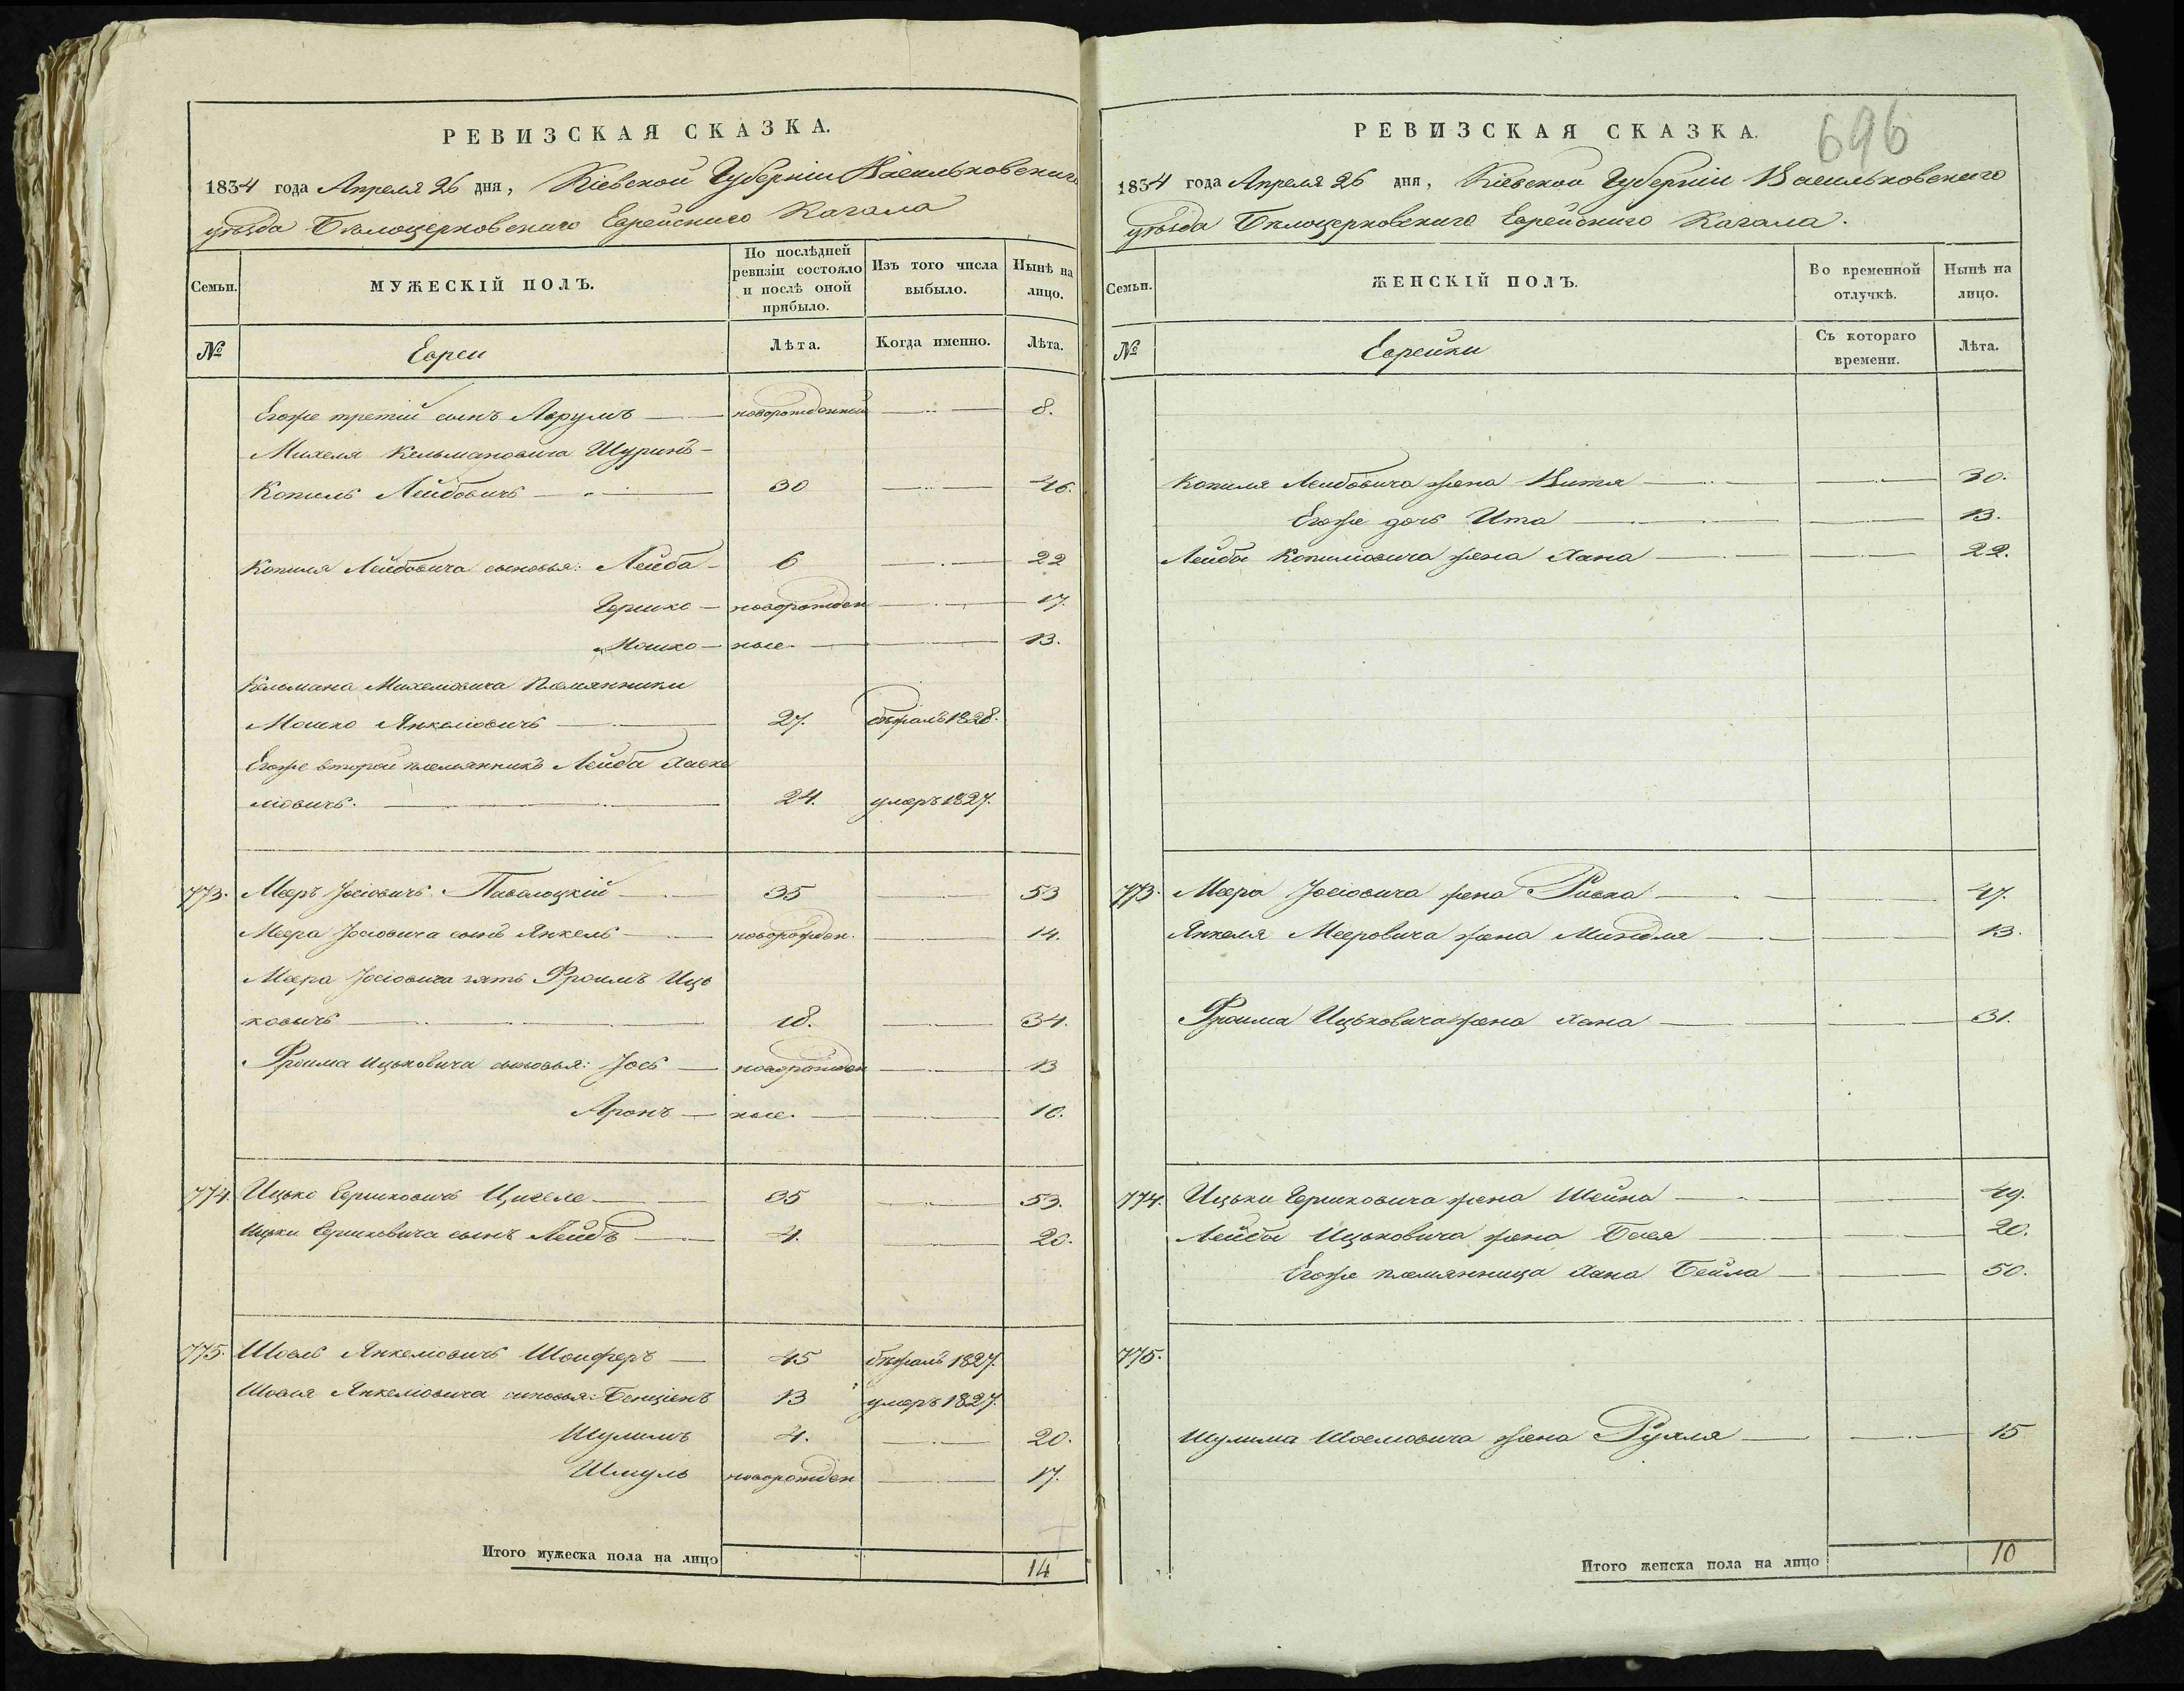 РЕВИЗСКАЯ СКАЗКА.
1834 года Апреля 26 дня, Кіевской Губерніи Васильковскаго
уѣзда Бѣлоцерковскаго Еврейскаго Кагала
Семьи. МУЖЕСКІЙ ПОЛЪ. По послѣдней ревизіи состояло и послѣ оной прибыло. Изъ того числа выбыло. Нынѣ на лицо.
№ Евреи Лѣта. Когда именно. Лѣта.
Егоже третій сынъ Аврумъ новорожденный 8.
Михеля Кельмановича Шуринъ
Копиль Лейбовичъ 30 46.
Копиля Лейбовича сыновья: Лейба 6 22
Гершко новорожден 17.
Мошко ные. 13.
Кельмана Михелиовича племянники
Мошко Янкелиовичъ 27. бѣжалъ 1828.
Егоже второй племянникъ Лейба Хаске
лиовичъ. 24. умеръ 1827.
773. Мееръ Іосіовичъ Паволоцкій 35 53
Меера Іосіовича сынъ Янкель новорожден. 14.
Меера Іосіовича зять Фроимъ Иць
ковичъ 18. 34.
Фроима Ицьковича сыновья: Іось новорожден 13
Аронъ ные. 10.
774. Ицько Гершковичъ Цигеле 35 53.
Ицьки Гершковича сынъ Лейбъ 4. 20.
775. Шоель Янкелиовичъ Шойферъ 45 бѣжалъ 1827.
Шоеля Янкелиовича сыновья: Бенціенъ 13 умеръ 1827.
Шулимъ 4. 20.
Шмуль новорожден 17.
Итого мужеска пола на лицо 14
696
РЕВИЗСКАЯ СКАЗКА.
1834 года Апреля 26 дня, Кіевской Губерніи Васильковскаго
уѣзда Бѣлоцерковскаго Еврейскаго Кагала.
Семьи. ЖЕНСКІЙ ПОЛЪ. Во временной отлучкѣ. Нынѣ на лицо.
№ Еврейки Съ котораго времени. Лѣта.
Копиля Лейбовича жена Витя 30.
Егоже дочь Ита 13.
Лейбы Копилиовича жена Хана 22.
773. Меера Іосіовича жена Риска 47.
Янкеля Мееровича жена Миндля 13.
Фроима Ицьковича жена Хана 31.
774. Ицьки Гершковича жена Шейна 49.
Лейбы Ицьковича жена Бася 20.
Егоже племянница Хана Бейла 50.
775.
Шулима Шоелиовича жена Рухля 15
Итого женска пола на лицо 10